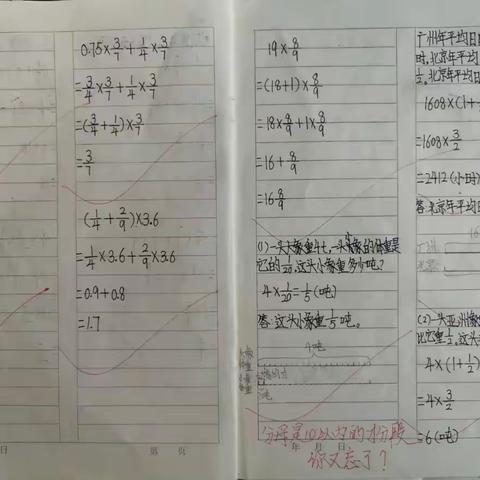 0.75×3/7+1/4×3/7
=3/4×3/7+1/4×3/7
=(3/4+1/4)×3/7
=3/7
(1/4+2/9)×3.6
=1/4×3.6+2/9×3.6
=0.9+0.8
=1.7
第 页
日
19×8/9
=(18+1)×8/9
=18×8/9+1×8/9
=16+8/9
=16 8/9
(1)一头大象重4七,一头小象的体重是
它的1/20,这头小象重多少吨?
4×1/20=1/5(吨)
答:这头小象重1/5吨。
4吨
吨
年 月 日
分母是10以内的才分段
你又忘了?
广州年平均日
时,北京年平均
1/2,北京年平均日
1608×(1+
=1608×3/2
=2412(小时)
答:北京年平均日
广州
北京
(2)一头亚洲象
比它重1/2,这头
4×(1+1/2)
=4×3/2
=6(吨)